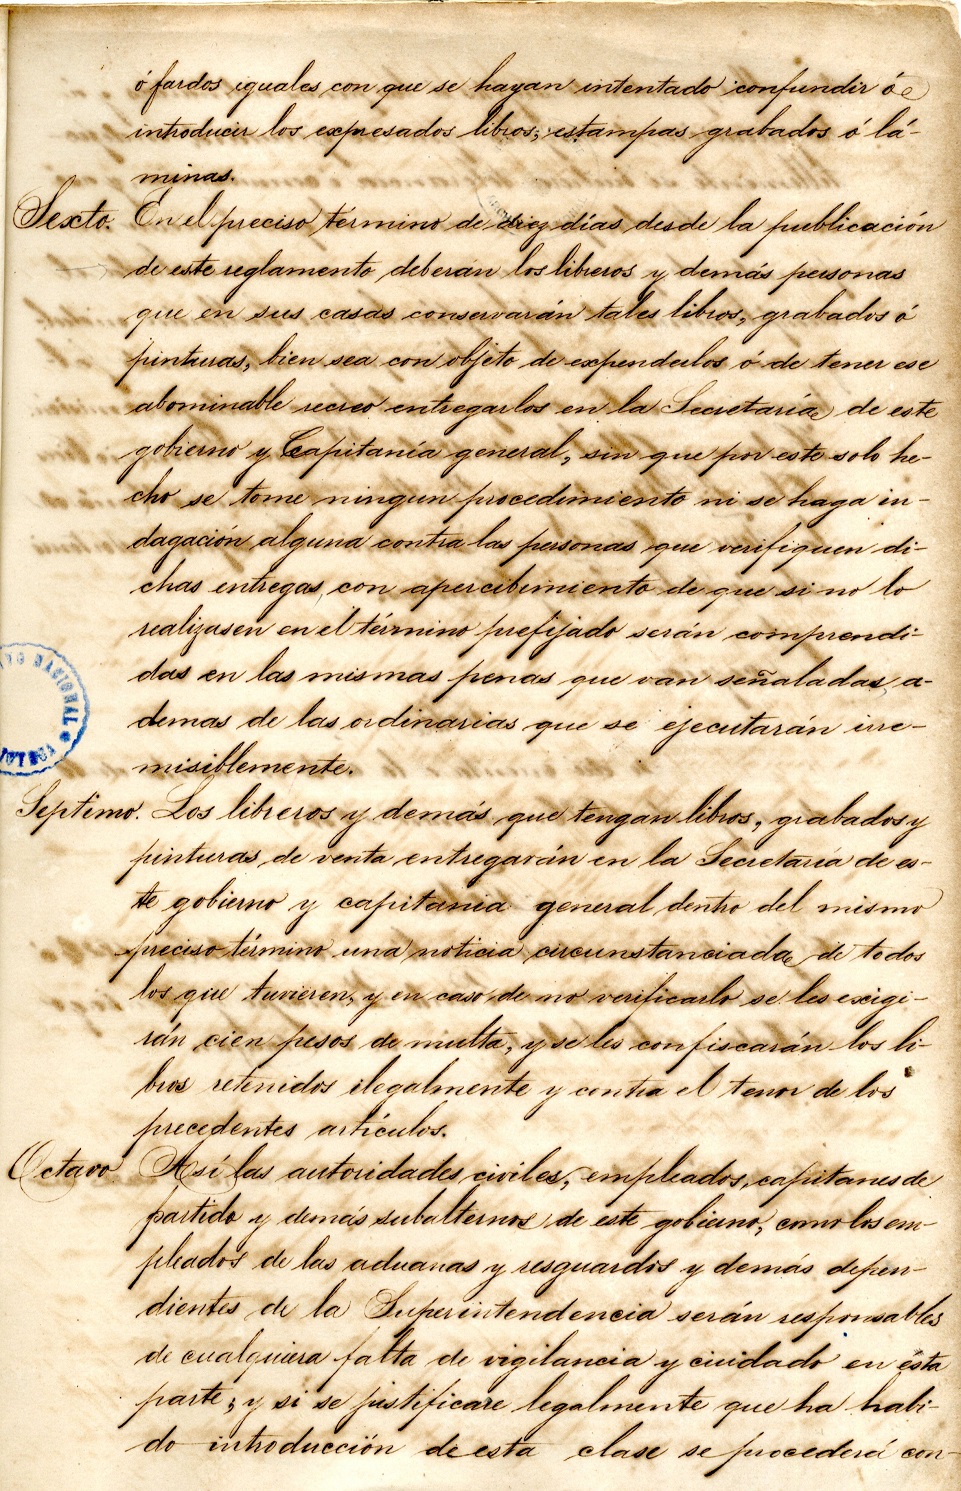 ó fardos iguales con que se hayan intentado confundir ó
introducir los expresados libros, estampas grabados ó lá-
minas.
Sexto. En el preciso término de diez días desde la publicación
de este reglamento deberán los libreros y demás personas
que en sus casas conservarán tales libros, grabados ó
pinturas, bien sea con objeto de expenderlos ó de tener ese
abominable recreo entregarlos en la Secretaría de este
gobierno y Capitanía general, sin que por este solo he-
cho se tome ningun procedimiento ni se haga in-
dagación alguna contra las personas que verifiquen di-
chas entregas, con apercibimiento de que si no lo
realizasen en el término prefijado serán comprendi-
das en las mismas penas que van señaladas, a-
demas de las ordinarias que se ejecutarán irre-
misiblemente.
Septimo. Los libreros y demás que tengan libros, grabados y
pinturas de venta entregarán en la Secretaría de es-
te gobierno y capitania general dentro del mismo
preciso término una noticia circunstanciada de todos
los que tuvieren, y en caso de no verificarlo se les exigi-
rán cien pesos de multa, y se les confiscarán los li-
bros retenidos ilegalmente y contra el tenor de los
precedentes artículos.
Octavo. Así las autoridades civiles, empleados, capitanes de
partido y demás subalternos de este gobierno, como los em-
pleados de las aduanas y resguardos y demás depen-
dientes de la Superintendencia serán responsables
de cualquiera falta de vigilancia y cuidado en ésta
parte, y si se justificare legalmente que ha habi-
do introducción de esta clase se procederá con-
NACIONAL